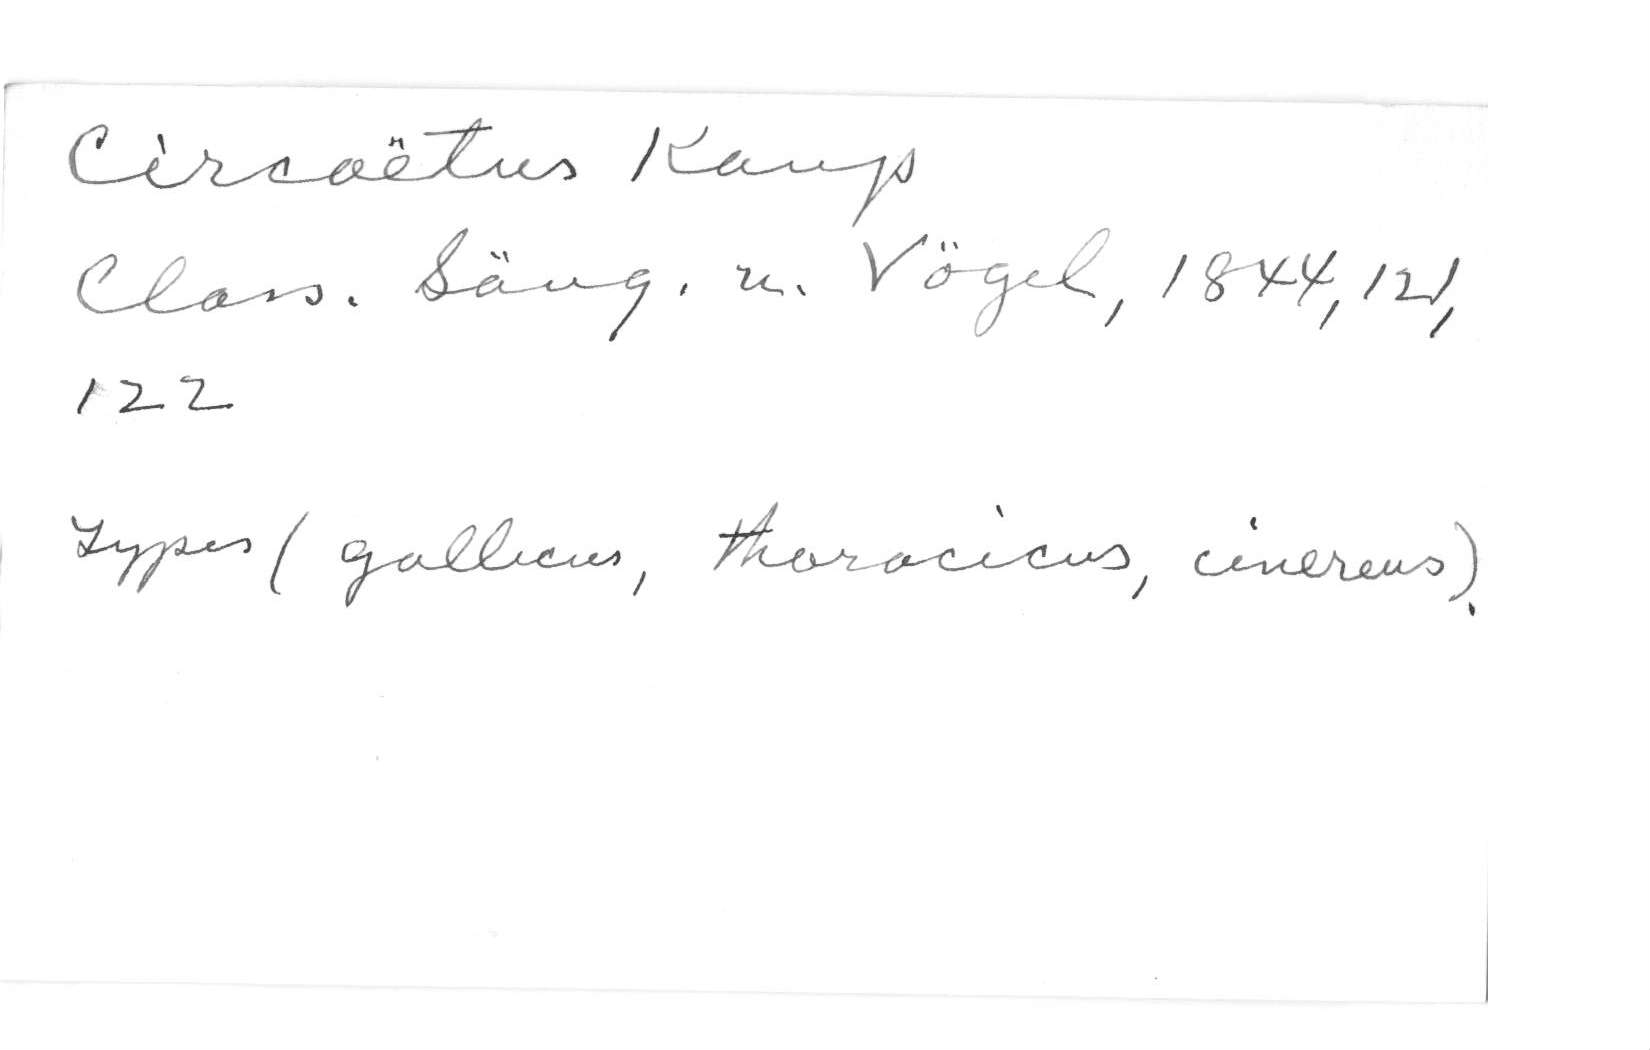 Circaëtus Kaup
Class. Säug. u. Vögel, 1844, 121,
122
Types ( gallicus, thoracicus, cinereus).